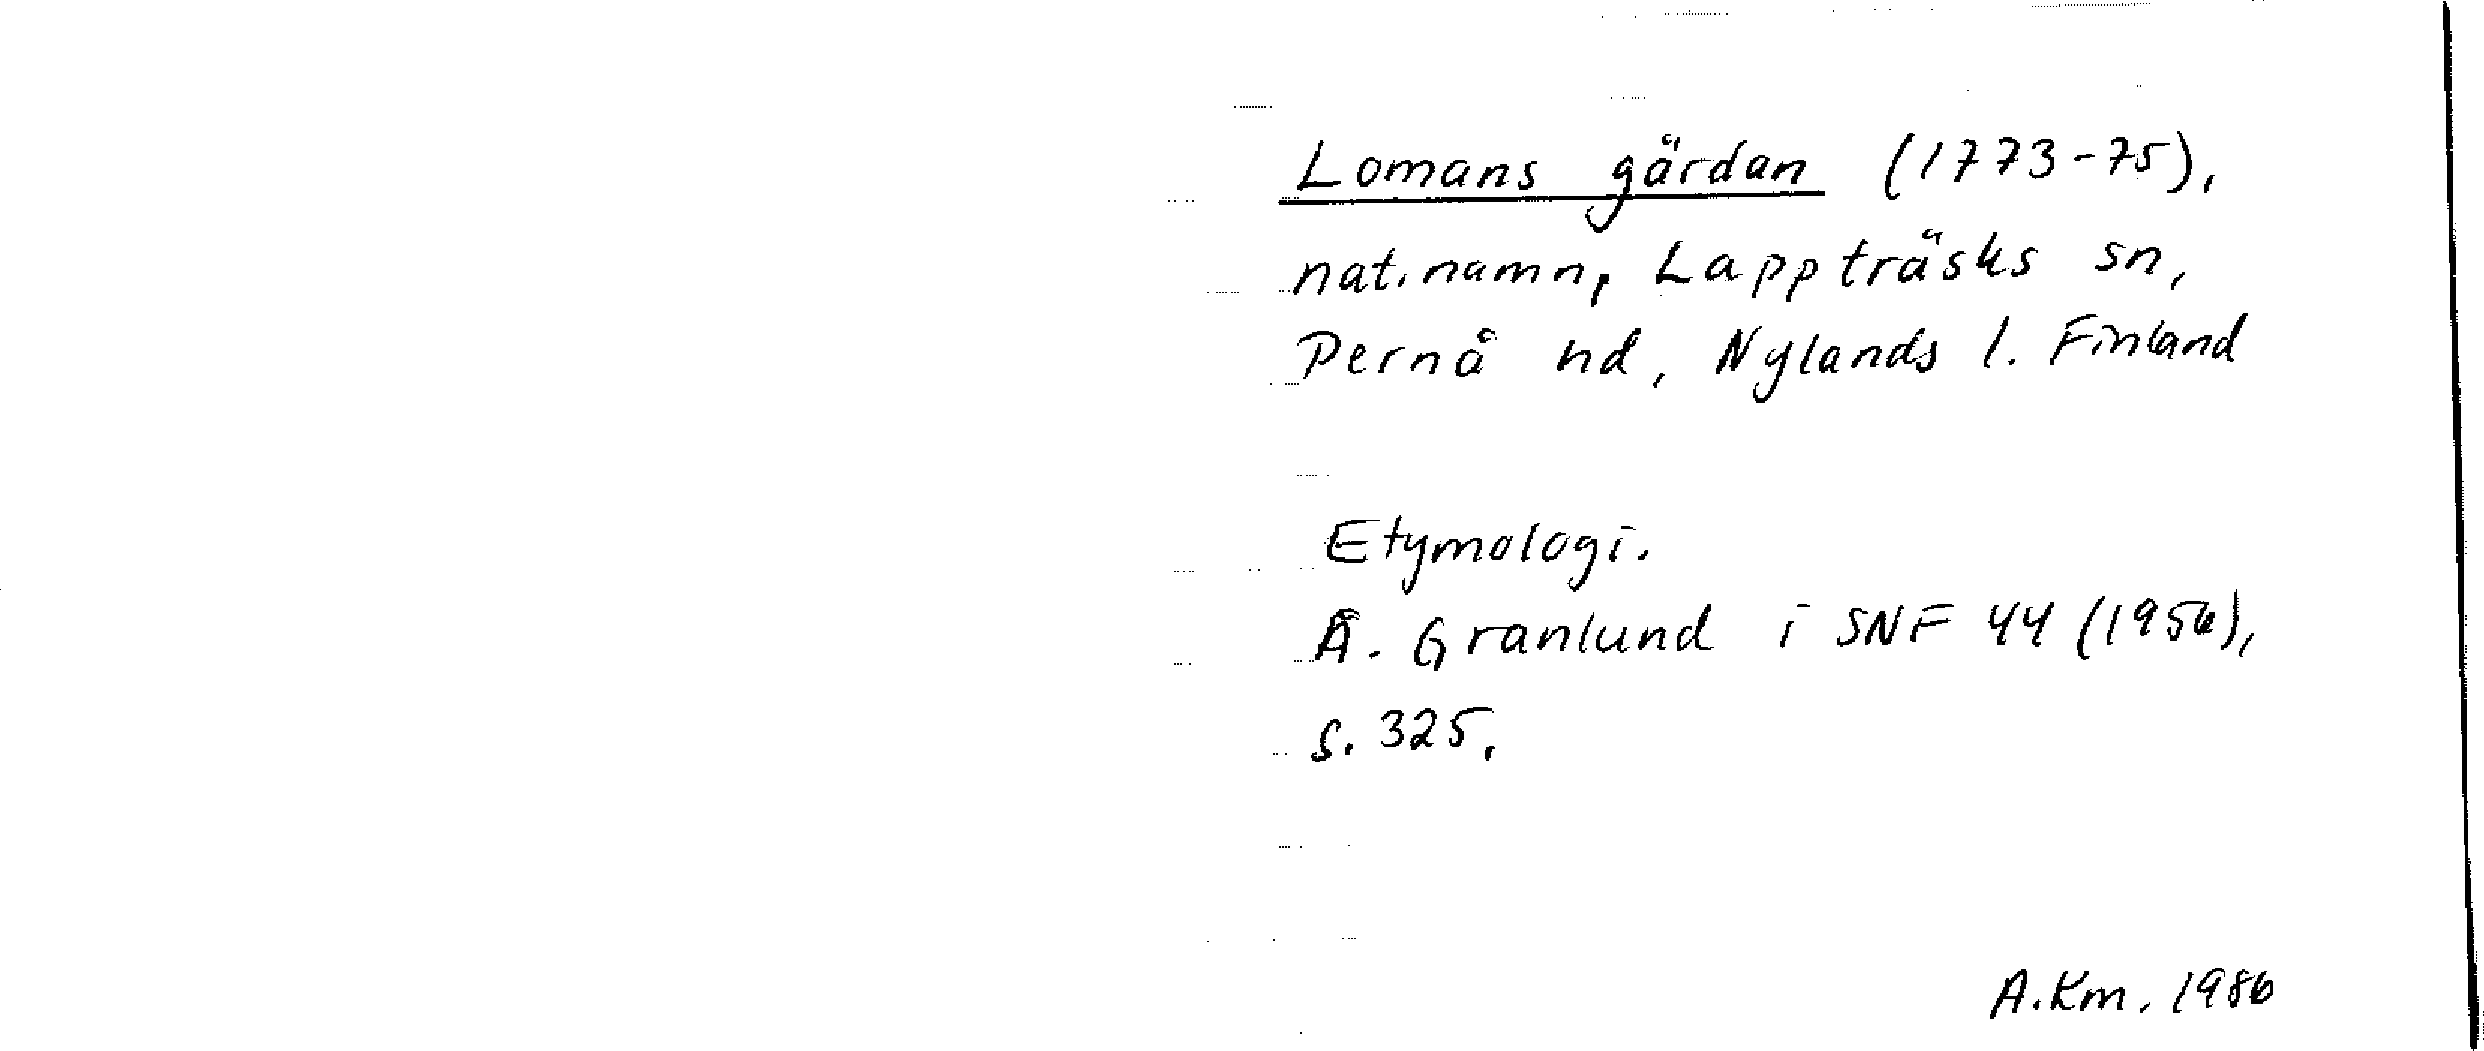 Lomans gärdan (1773-75),
nat.namn, Lappträsks sn,
Pernå hd, Nylands l. Finland
Etymologi.
Å. Granlund i SNF 44 (1956),
s. 325.
A.Km. 1986